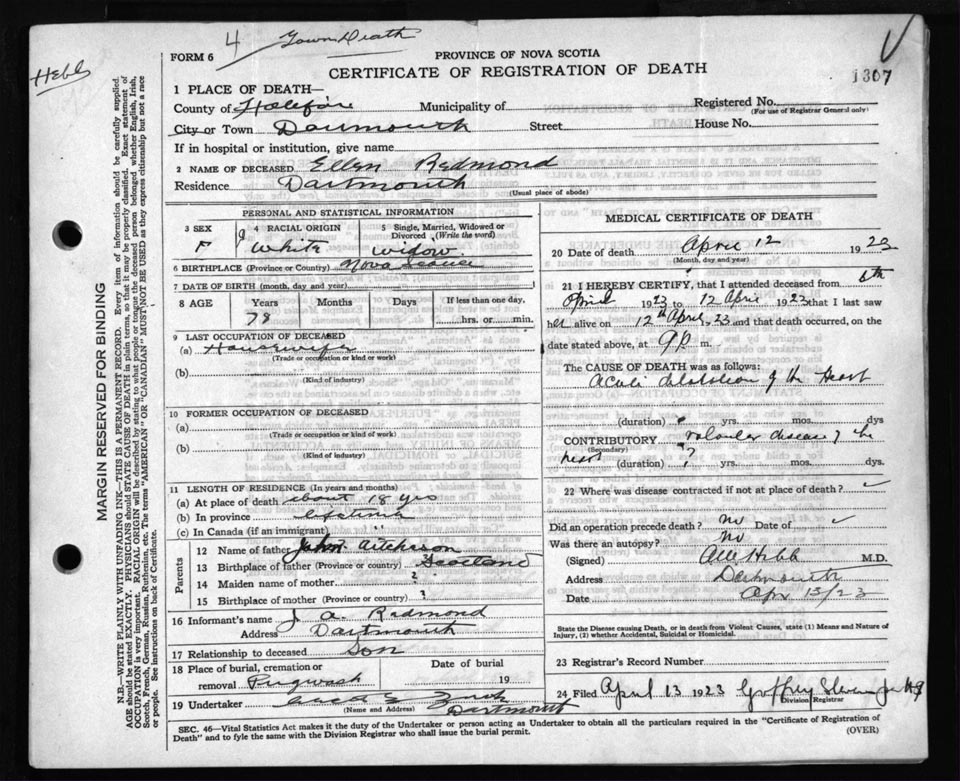 4 Town Death
FORM 6
PROVINCE OF NOVA SCOTIA
CERTIFICATE OF REGISTRATION OF DEATH
Hebb
1307
1 PLACE OF DEATH—
County of Halifax Municipality of Registered No.
(For use of Registrar General only)
City or Town Dartmouth Street House No.
If in hospital or institution, give name
2 NAME OF DECEASED Ellen Redmond
Residence Dartmouth
(Usual place of abode)
MARGIN RESERVED FOR BINDING
N.B.—WRITE PLAINLY WITH UNFADING INK—THIS IS A PERMANENT RECORD. Every item of information should be carefully supplied.
AGE should be stated EXACTLY. PHYSICIANS should STATE CAUSE OF DEATH in plain terms, so that it may be properly classified. Exact statement of
OCCUPATION is very important. RACIAL ORIGIN will be described by stating to what people or tongue the deceased person belonged whether English, Irish,
Scotch, French, German, Russian, Ruthenian, etc. The terms "AMERICAN" OR "CANADIAN" MUST NOT BE USED as they express citizenship but not a race
or people. See instructions on back of Certificate.
PERSONAL AND STATISTICAL INFORMATION
3 SEX 4 RACIAL ORIGIN 5 Single, Married, Widowed or
Divorced (Write the word)
F White Widow
6 BIRTHPLACE (Province or Country) Nova Scotia
7 DATE OF BIRTH (month, day and year)
8 AGE Years Months Days If less than one day,
78 hrs. or min.
9 LAST OCCUPATION OF DECEASED
(a) Housewife
(Trade or occupation or kind or work)
(b)
(Kind of industry)
10 FORMER OCCUPATION OF DECEASED
(a)
(Trade or occupation or kind of work)
(b)
(Kind of industry)
11 LENGTH OF RESIDENCE (In years and months)
(a) At place of death about 18 yrs
(b) In province lifetime
(c) In Canada (if an immigrant) "
Parents
12 Name of father John Aitcheson
13 Birthplace of father (Province or country) Scotland
14 Maiden name of mother ?
15 Birthplace of mother (Province or country) ?
16 Informant's name J. A. Redmond
Address Dartmouth
17 Relationship to deceased Son
18 Place of burial, cremation or Date of burial
removal Pugwash 19
19 Undertaker Zink
(Name and Address) Dartmouth
MEDICAL CERTIFICATE OF DEATH
20 Date of death April 12 1923
(Month, day and year)
21 I HEREBY CERTIFY, that I attended deceased from 6th
April 1923 to 12 April 1923 that I last saw
her alive on 12th April, 1923 and that death occurred, on the
date stated above, at 9 P m.
The CAUSE OF DEATH was as follows:
Acute dilatation of the Heart
(duration) ? yrs. mos. dys
CONTRIBUTORY valvular disease of the
(Secondary)
heart (duration) ? yrs. mos. dys.
22 Where was disease contracted if not at place of death?
Did an operation precede death? no Date of
Was there an autopsy? no
(Signed) Hebb M.D.
Address Dartmouth
Date Apr 13/23
State the Disease causing Death, or in death from Violent Causes, state (1) Means and Nature of
Injury, (2) whether Accidental, Suicidal or Homicidal.
23 Registrar's Record Number
24 Filed April 13 1923 Geoffrey Stevens
Division Registrar
SEC. 46—Vital Statistics Act makes it the duty of the Undertaker or person acting as Undertaker to obtain all the particulars required in the "Certificate of Registration of
Death" and to fyle the same with the Division Registrar who shall issue the burial permit. (OVER)